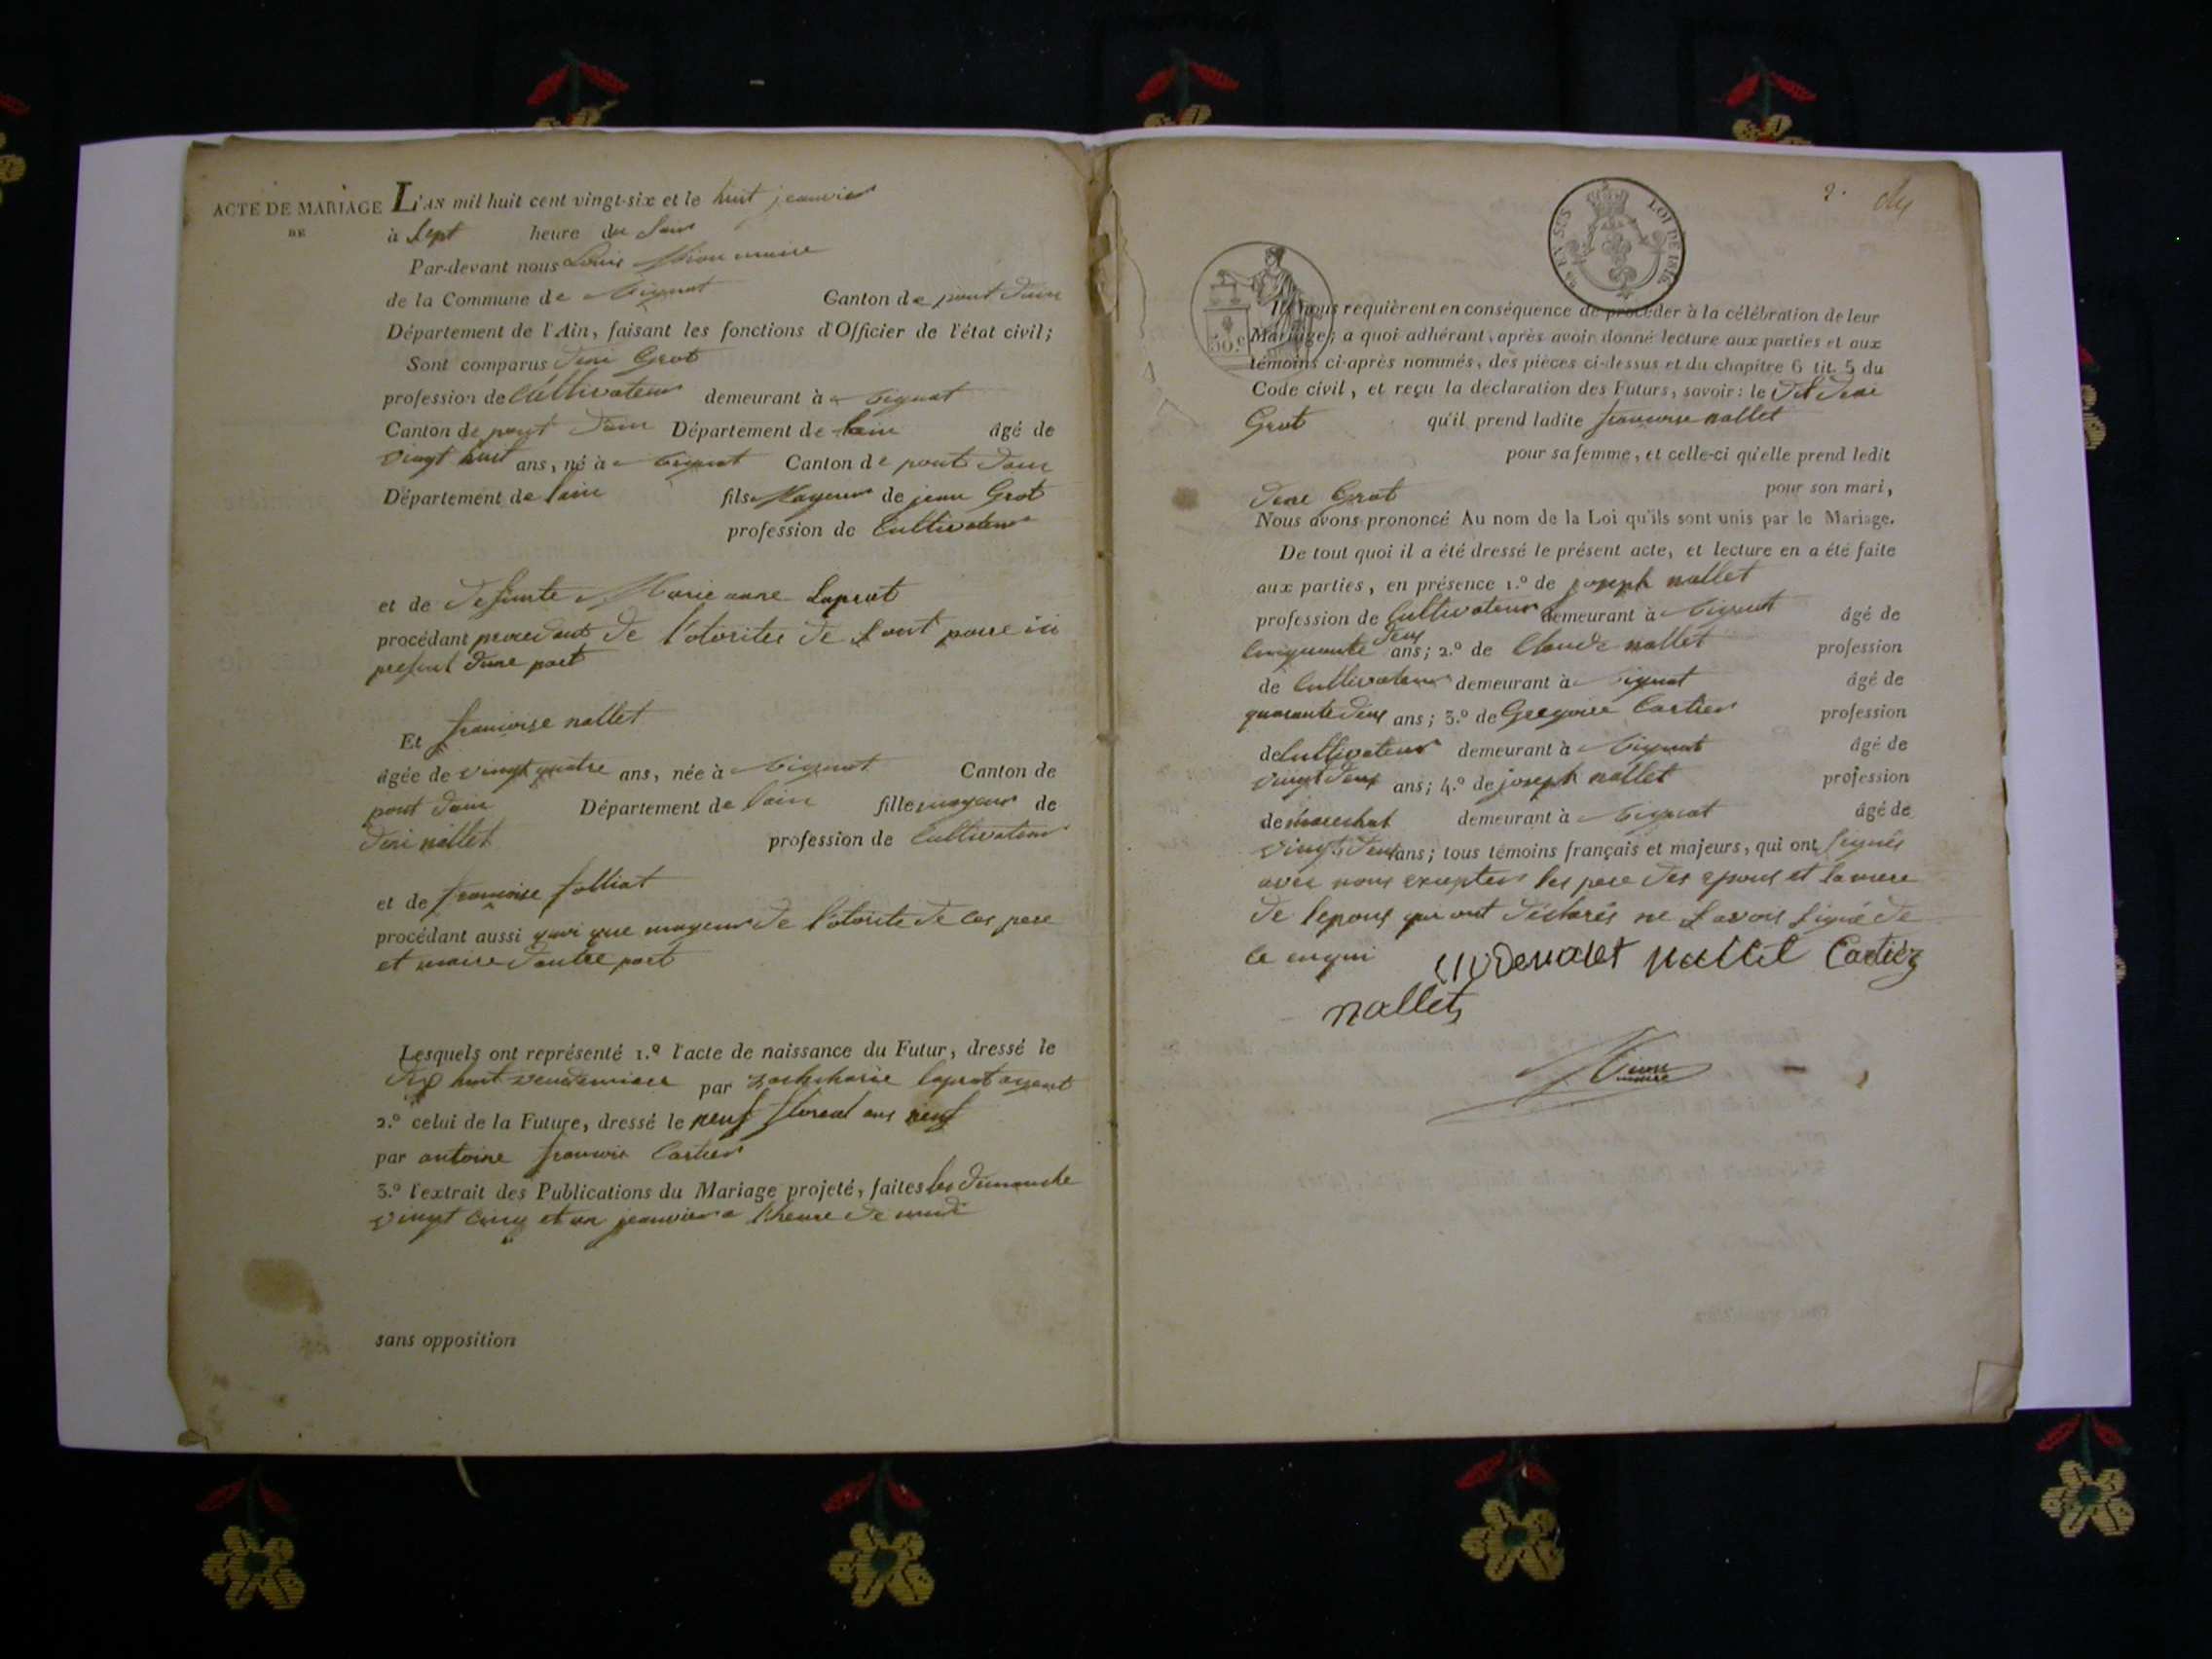 ACTE DE MARIAGE
DE
L'AN mil huit cent vingt-six et le huit jeanvier
à Sept heure du Soir
Par-devant nous Louis maire
de la Commune de Canton de pont dain
Département de l'Ain, faisant les fonctions d'Officier de l'état civil;
Sont comparus Deni Grot
profession de Cultivateur demeurant à
Canton de pont dain Département de lain âgé de
vingt huit ans, né à Canton de pont dain
Département de lain fils Mayeur de jean Grot
profession de Cultivateur
et de defunte Marie anne Laprat
procédant procedant de l'otorites de Sont paire ici
present dune part
Et francoise nallet
âgée de vingt quatre ans, née à Canton de
pont dain Département de lain fille mayeur de
Deni nallet profession de Cultivateur
et de francoise folliat
procédant aussi quoi que mayeur de l'otorite de Ces pere
et maire dautre part
Lesquels ont représenté 1.º l'acte de naissance du Futur, dressé le
dix huit vendemiaire par laprat agent
2.º celui de la Future, dressé le neuf floreal ans neuf
par antoine francois Cartier
3.º l'extrait des Publications du Mariage projeté, faites les dimanche
vingt cinq et un jeanvier a lheure de midi
sans opposition
2.
LOI DE 1816
50.c
Ils nous requièrent en conséquence de procéder à la célébration de leur
Mariage; a quoi adhérant, après avoir donné lecture aux parties et aux
témoins ci-après nommés, des pièces ci-dessus et du chapitre 6 tit. 5 du
Code civil, et reçu la déclaration des Futurs, savoir: le dit Deni
Grot qu'il prend ladite francoise nallet
pour sa femme, et celle-ci qu'elle prend ledit
Deni Grot pour son mari,
Nous avons prononcé Au nom de la Loi qu'ils sont unis par le Mariage.
De tout quoi il a été dressé le présent acte, et lecture en a été faite
aux parties, en présence 1.º de joseph nallet
profession de Cultivateur demeurant à âgé de
Cinquante deux ans; 2.º de Claude nallet profession
de Cultivateur demeurant à âgé de
quarante deux ans; 3.º de Gregoire Cartier profession
de Cultivateur demeurant à âgé de
vingt deux ans; 4.º de joseph nallet profession
de marechal demeurant à âgé de
vingt deux ans; tous témoins français et majeurs, qui ont signés
avec nous exceptes les pere des epoux et la mere
de lepous qui ont déclarés ne Savoir Signé de
ce enqui nallet Cartier
nallet
maire